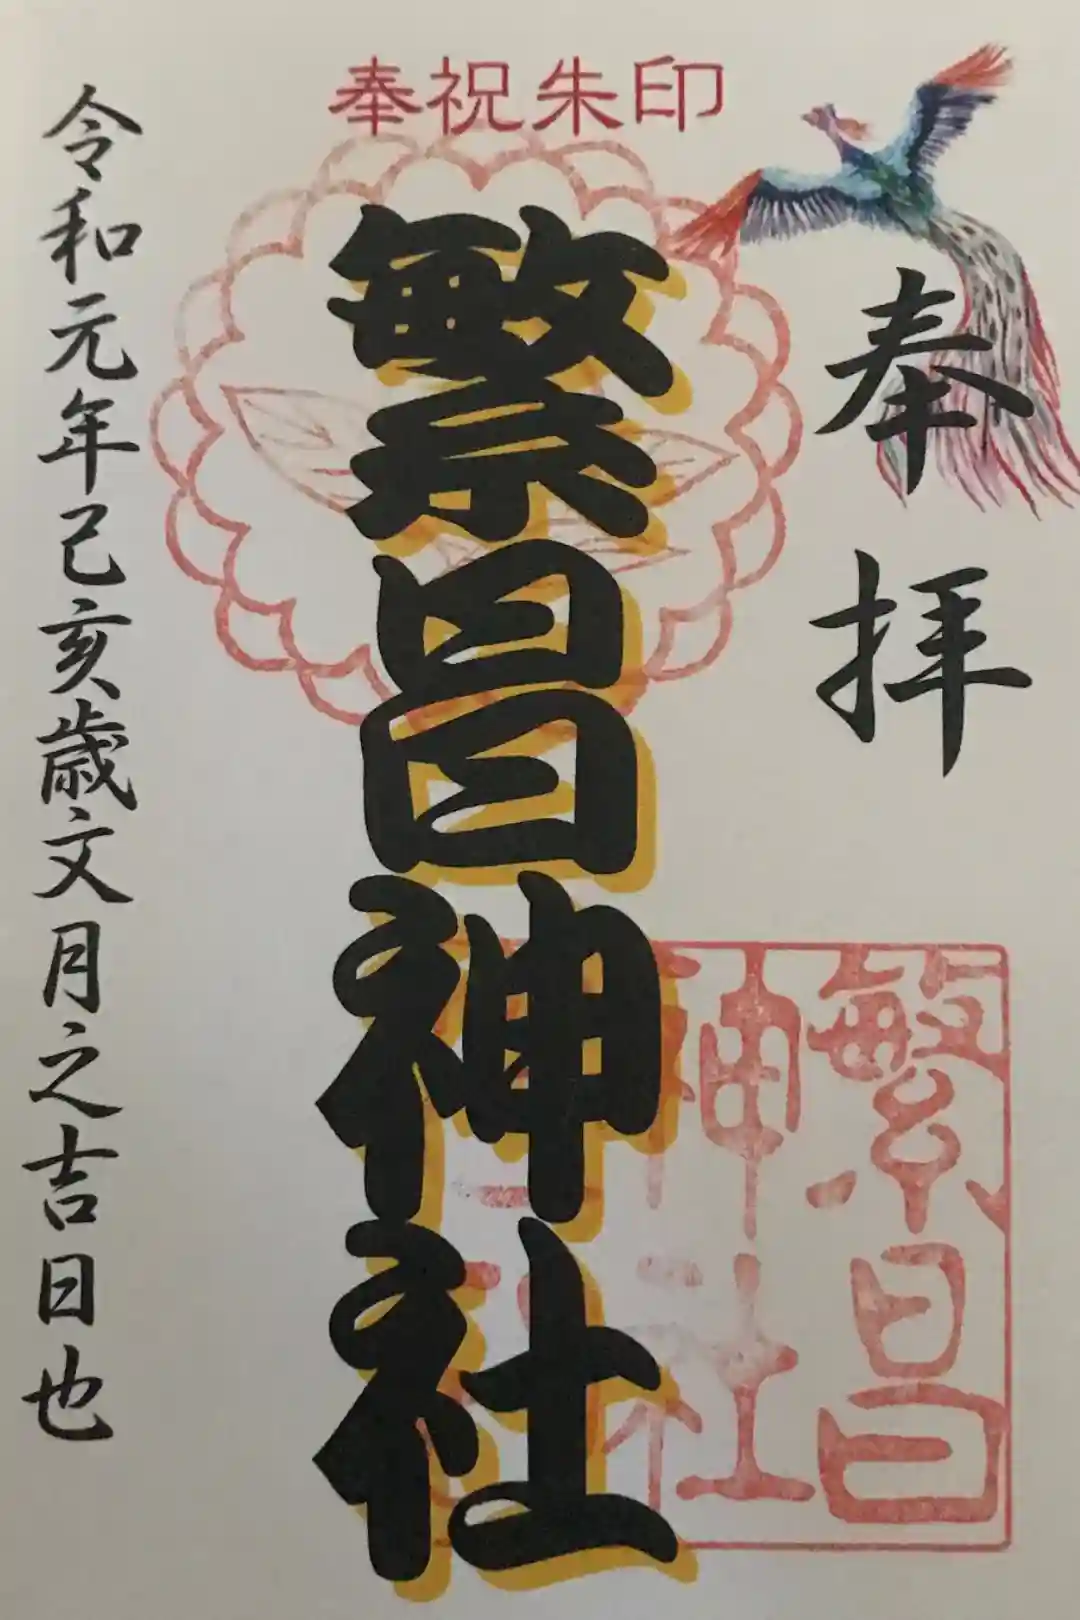 奉祝朱印
奉拝
繁昌神社
繁昌
神社
令和元年己亥歳文月之吉日也